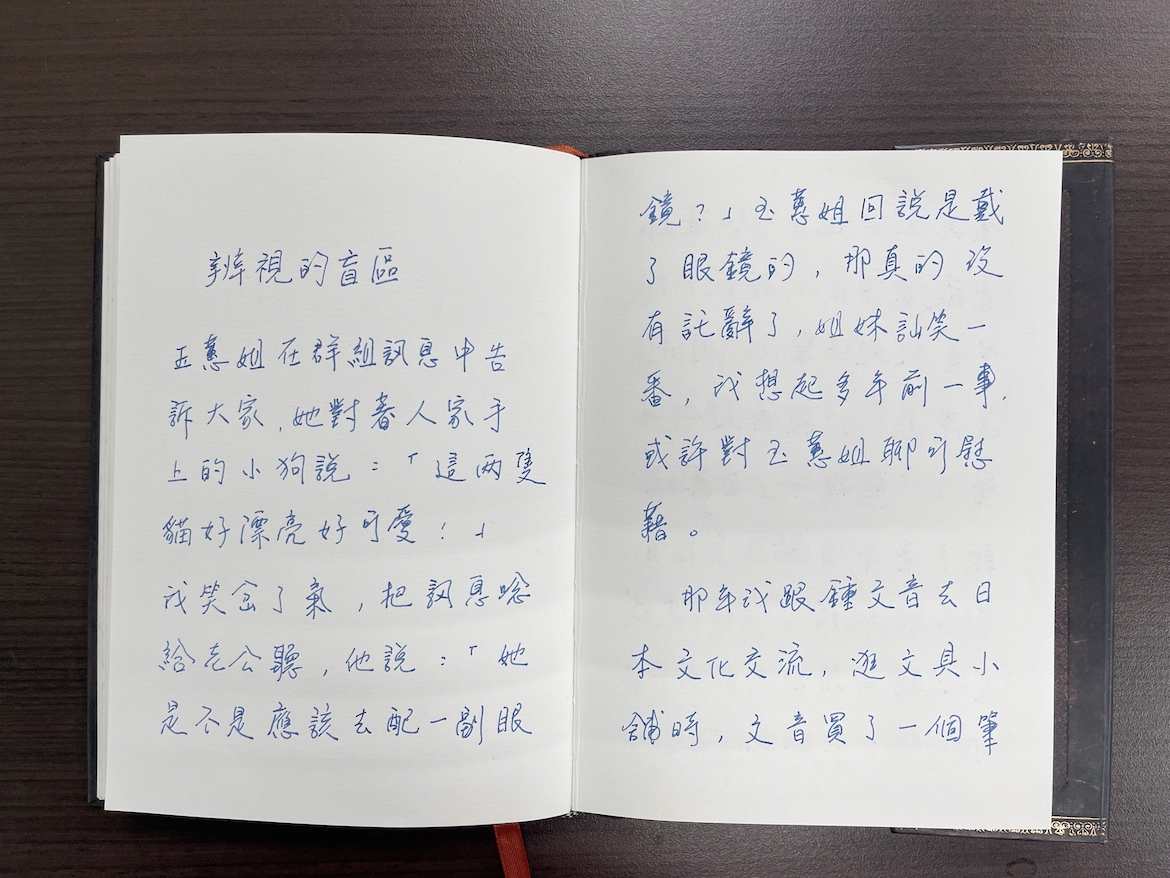 辨視的盲區
玉蕙姐在群組訊息中告
訴大家,她對著人家手
上的小狗說:「這兩隻
貓好漂亮好可愛!」
我笑岔了氣,把訊息唸
給老公聽,他說:「她
是不是應該去配一副眼
鏡?」玉蕙姐回說是戴
了眼鏡的,那真的沒
有託辭了,姐妹訕笑一
番,我想起多年前一事,
或許對玉蕙姐聊可慰
藉。
那年我跟鍾文音去日
本文化交流,逛文具小
舖時,文音買了一個筆